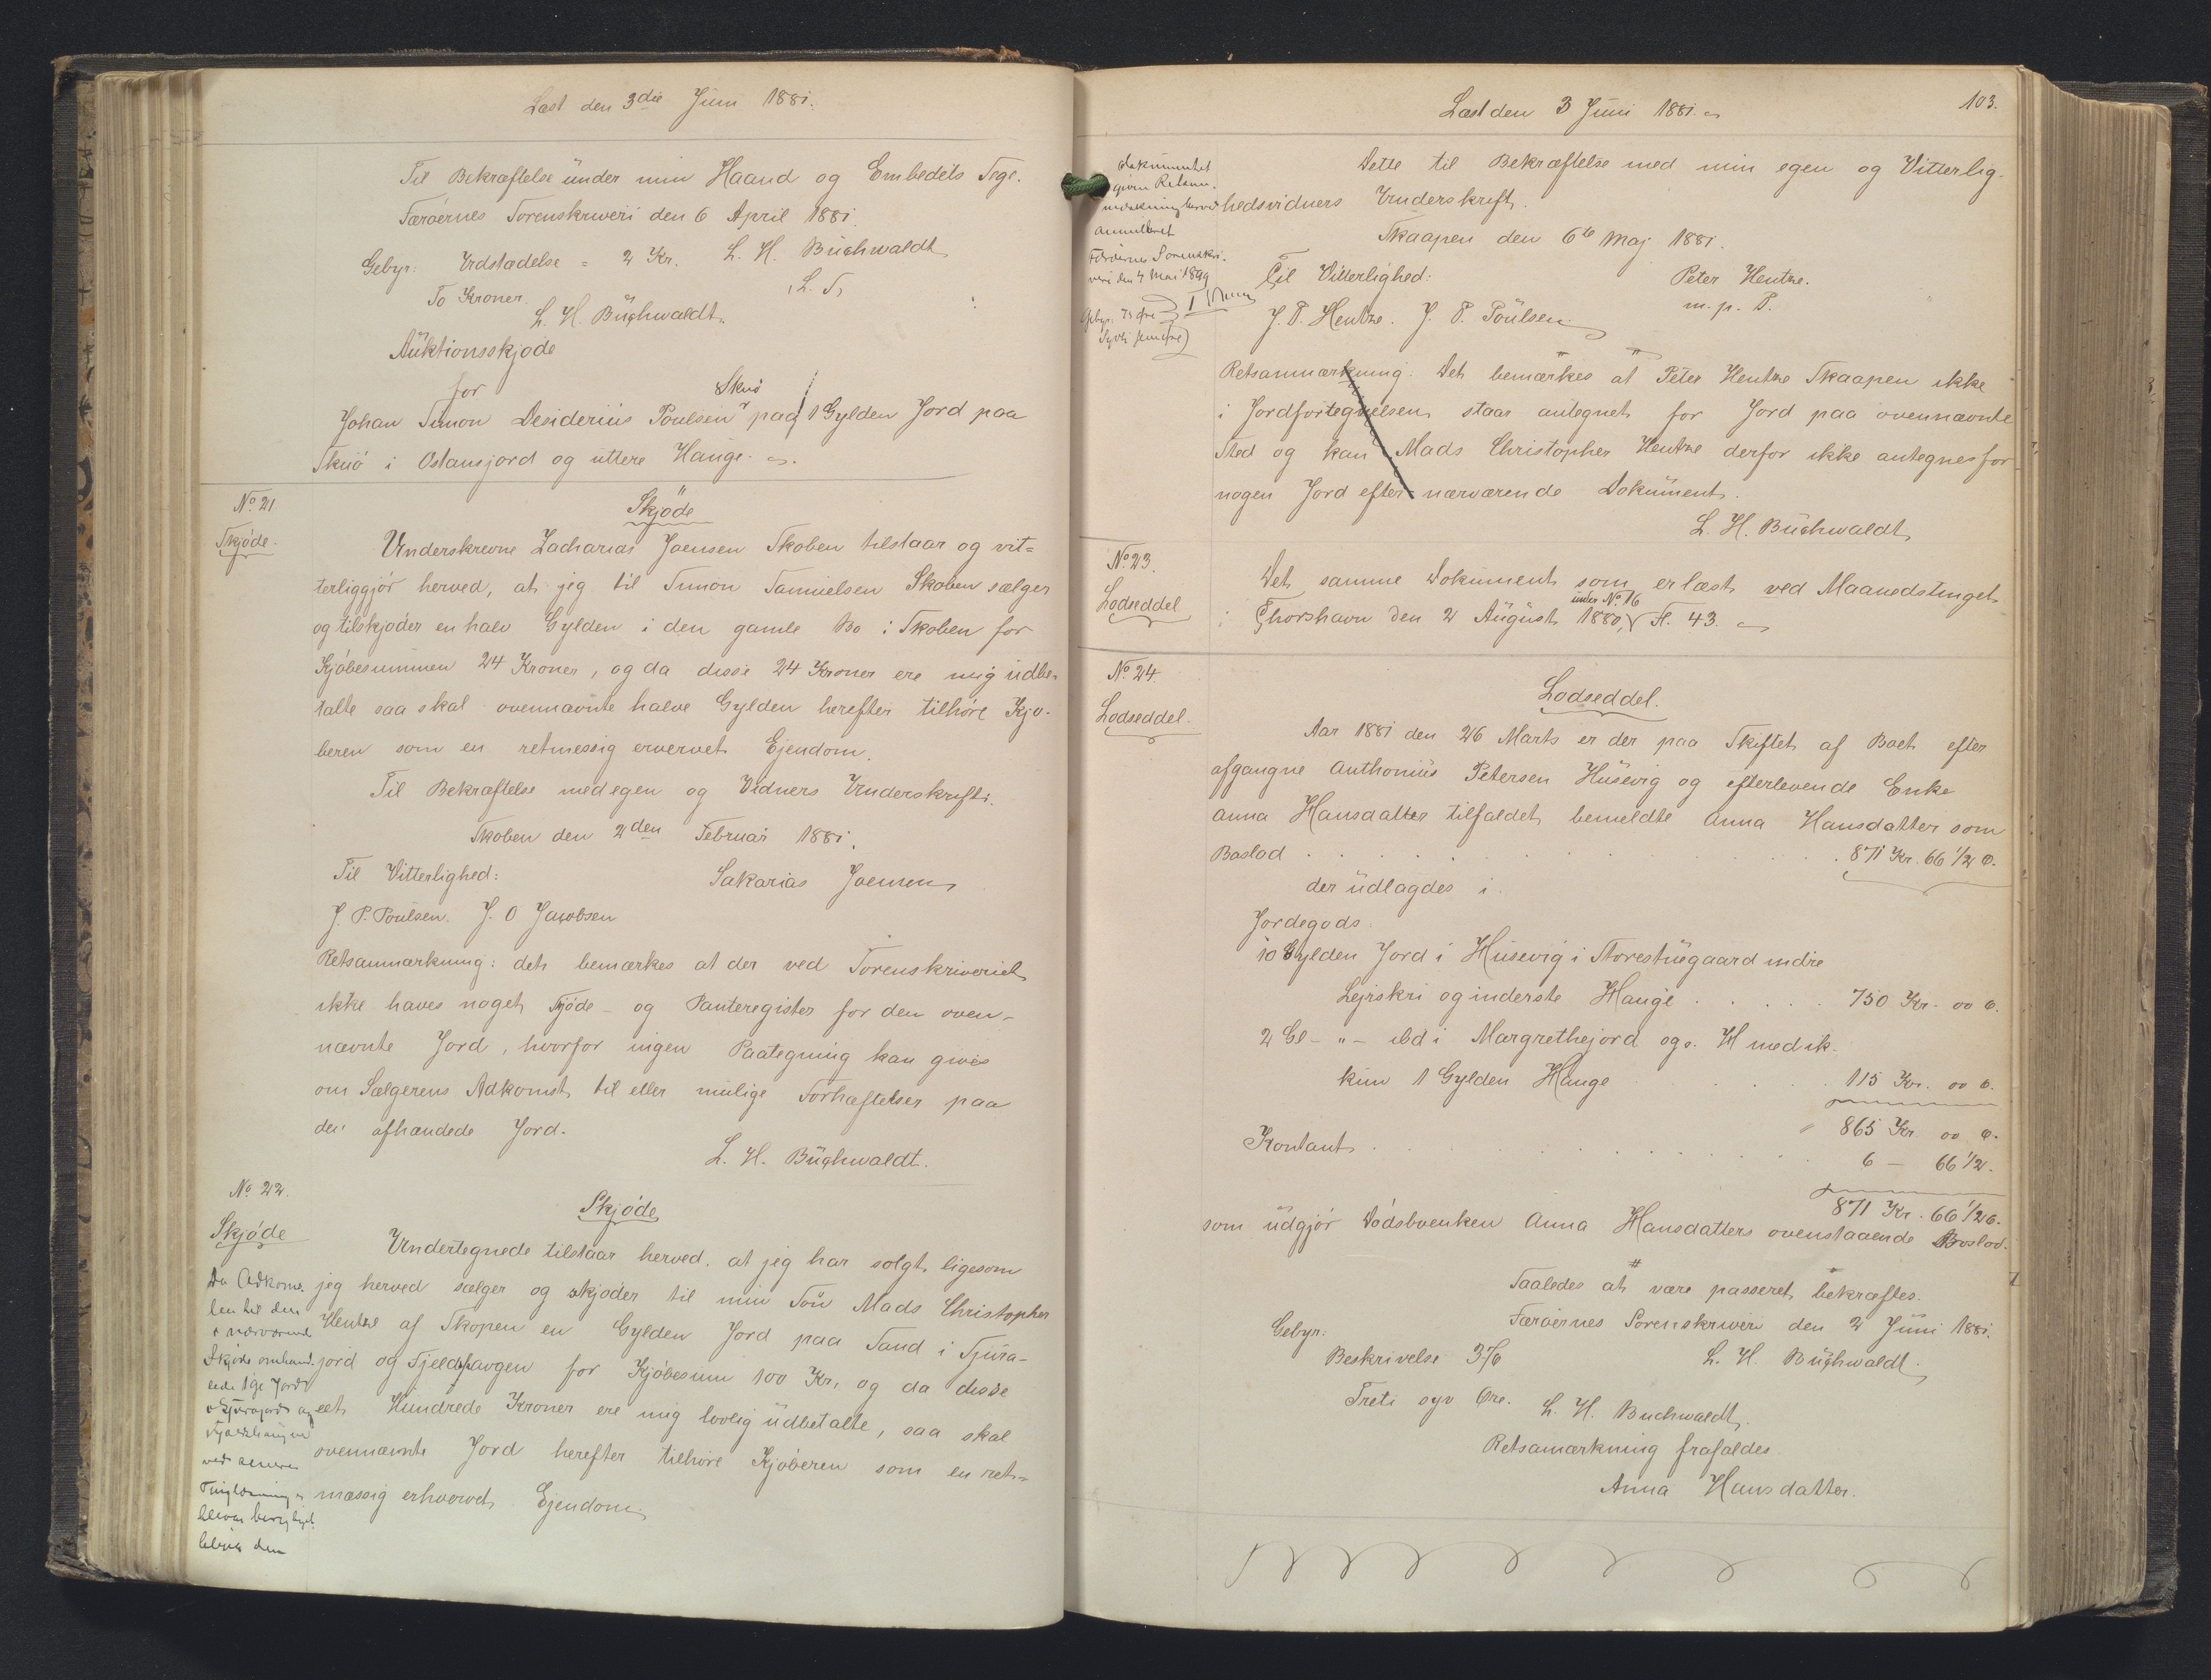 Læst den 3die Juni 1881.
Til Bekræftelse under min Haand og Embedets Segl.
Færøernes Sorenskriveri den 6 April 1881.
Gebyr: Udstædelse = 2 Kr. L. H. Buchwaldt
To Kroner. (L. S.)
L. H. Buchwaldt.
Auktionsskjøde
for
Skuø
Johan Simon Desiderius Poulsen paa 1 Gylden Jord paa
Skuø i Ostansjord og uttere Hauge.
No. 21
Skjøde.
Skjøde
Underskrevne Zacharias Joensen Skoben tilstaar og vit=
terliggjør herved, at jeg til Simon Samuelsen Skoben sælger
og tilskjøder en halv Gylden i den gamle Bo i Skoben for
Kjøbesummen 24 Kroner, og da disse 24 Kroner ere mig udbe-
talte saa skal ovennævnte halve Gylden herefter tilhøre Kjø-
beren som en retmessig ervervet Ejendom.
Til Bekræftelse med egen og Vidners Underskrift.
Skoben den 2den Februar 1881.
Til Vitterlighed: Sakarias Joensen
J. P. Poulsen. J. O Jacobsen
Retsanmærkning: det bemærkes at der ved Sorenskriveriet
ikke haves noget Sjøde- og Panteregister for den oven-
nævnte Jord, hvorfor ingen Paategning kan gives
om Sælgerens Adkomst til eller mulige Forhæftelser paa
den afhændede Jord.
L. H. Buchwaldt.
No. 22.
Skjøde
Skjøde
Undertegnede tilstaar herved, at jeg har solgt ligesom
jeg herved sælger og skjøder til min Søn Mads Christopher
Hentze af Skopen en Gylden Jord paa Sand i Sjura-
jord og Fjeldhavgen for Kjøbesum 100 Kr, og da disse
eet Hundrede Kroner ere mig lovlig udbetalte, saa skal
ovennævnte Jord herefter tilhøre Kjøberen som en ret=
mæssig erhvervet Ejendom.
Da Adkoms-
ten til den
i nærværende
Skjøde omhand-
lede 1 Gl Jord
i Sjurajord og
ved senere
Tinglæsning er
bleven
bliver den
Læst den 3 Juni 1881.
103.
Dokumentet
given Retsan-
mærkning herved
annulleret
Færøernes Sorenskri-
veri den 4 Mai 1899
Gebyr. 75 Øre
Syvti fem Øre)
Dette til Bekræftelse med min egen og Vitterlig-
hedsvidners Underskrift.
Skaapen den 6te Maj 1881.
Til Vitterlighed: Peter Hentze.
J. P. Hentze. J. P. Poulsen m. p. P.
Retsanmærkning. Det bemærkes at Peter Hentze Skaapen ikke
i Jordfortegnelsen staar antegnet for Jord paa ovennævnte
Sted og kan Mads Christopher Hentze derfor ikke antegnes for
nogen Jord efter nærværende Dokument.
L. H. Buchwaldt
No. 23.
Lodseddel
Det samme Dokument som er læst ved Maanedstinget
under No. 16
i Thorshavn den 2 August 1880, F. 43.
No. 24.
Lodseddel.
Lodseddel.
Aar 1881 den 26 Marts er der paa Skiftet af Boet efter
afgangne Anthonius Petersen Husevig og efterlevende Enke
Anna Hansdatter tilfaldet bemeldte Anna Hansdatter som
Boslod . . . . . . 871 Kr. 66 1/2 Ø.
der udlagdes i
Jordegods.
10 Gylden Jord i Husevig i Storestuegaard indre
Lejrskri og inderste Hauge . . . . . 750 Kr. 00 Ø.
2 Gl - " - ibd i Margrethejord og H med ik-
kun 1 Gylden Hauge . . . . 115 Kr. 00 Ø.
865 Kr. 00 Ø.
Kontant . . . . . . 6 - 66 1/2.
871 Kr. 66 1/2 Ø.
som udgjør Dødsboenken Anna Hansdatters ovenstaaende Boslod.
Saaledes at være passeret bekræftes.
Færøernes Sorenskriveri den 2 Juni 1881.
Gebyr:
Beskrivelse 37/6 L. H. Buchwaldt.
Treti syv Øre. L. H. Buchwaldt.
Retsamærkning frafaldes
Anna Hansdatter.